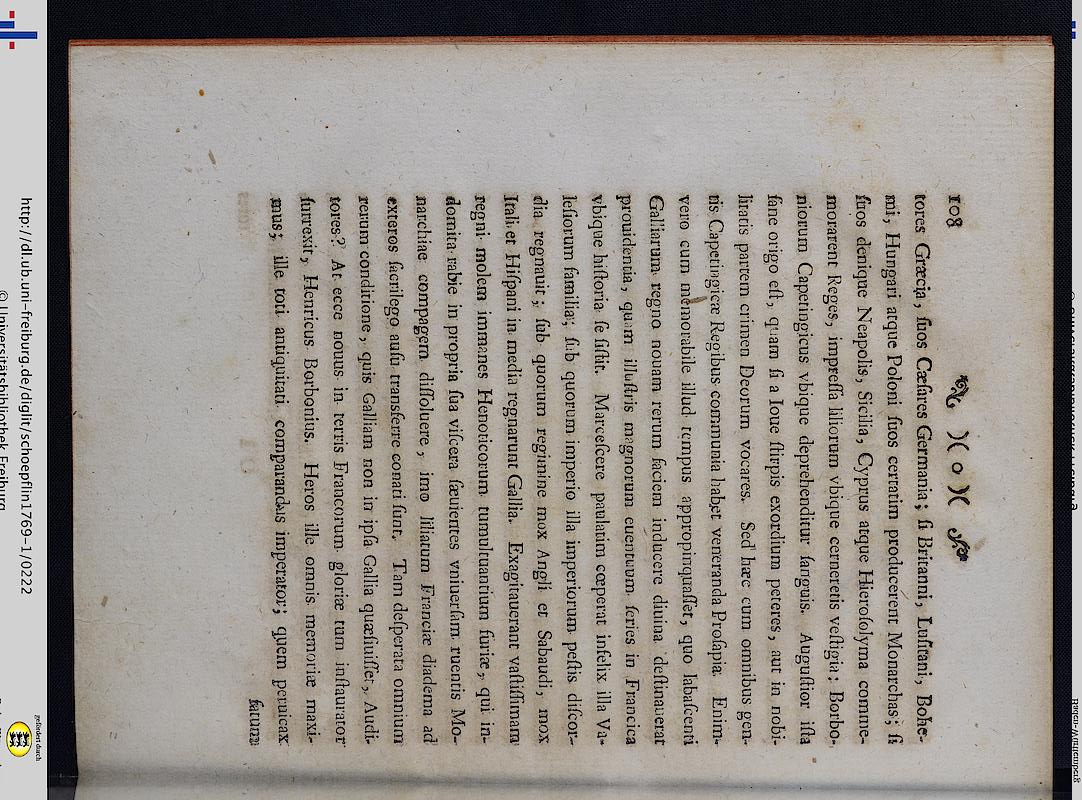 108 )( o )(
tores Græcia, ſuos Cæſares Germania; ſi Britanni, Luſitani, Bohe-
mi, Hungari atque Poloni ſuos certatim producerent Monarchas; ſi
ſuos denique Neapolis, Sicilia, Cyprus atque Hieroſolyma comme-
morarent Reges, impreſſa liliorum vbique cerneretis veſtigia; Borbo-
niorum Capetingicus vbique deprehenditur ſanguis. Auguſtior iſta
ſane origo eſt, quam ſi a Ioue ſtirpis exordium peteres, aut in nobi-
litatis partem crimen Deorum vocares. Sed hæc cum omnibus gen-
tis Capetingicæ Regibus communia habet veneranda Proſapia. Enim-
vero cum memorabile illud tempus appropinquaſſet, quo labaſcenti
Galliarum regno nouam rerum faciem inducere diuina deſtinauerat
prouidentia, quam illuſtris magnorum euentuum ſeries in Francica
vbique hiſtoria ſe ſiſtit. Marceſcere paulatim cœperat infelix illa Va-
leſiorum familia; ſub quorum imperio illa imperiorum peſtis diſcor-
dia regnauit; ſub quorum regimine mox Angli et Sabaudi, mox
Itali et Hiſpani in media regnarunt Gallia. Exagitauerant vaſtiſſimam
regni molem immanes Henoticorum tumultuantium furiæ, qui in-
domita rabie in propria ſua viſcera ſæuientes vniuerſam ruentis Mo-
narchiae compagem diſſoluere, imo liliatum Franciæ diadema ad
exteros ſacrilego auſu transferre conati ſunt. Tam deſperata omnium
rerum conditione, quis Galliam non in ipſa Gallia quæſiuiſſet, Audi-
tores? At ecce nouus in terris Francorum gloriæ tum inſtaurator
ſurrexit, Henricus Borbonius. Heros ille omnis memoriæ maxi-
mus; ille toti antiquitati comparandus imperator; quem peruicax
fatum
http://dl.ub.uni-freiburg.de/diglit/schoepflin1769-1/0222
© Universitätsbibliothek Freiburg
gefördert durch